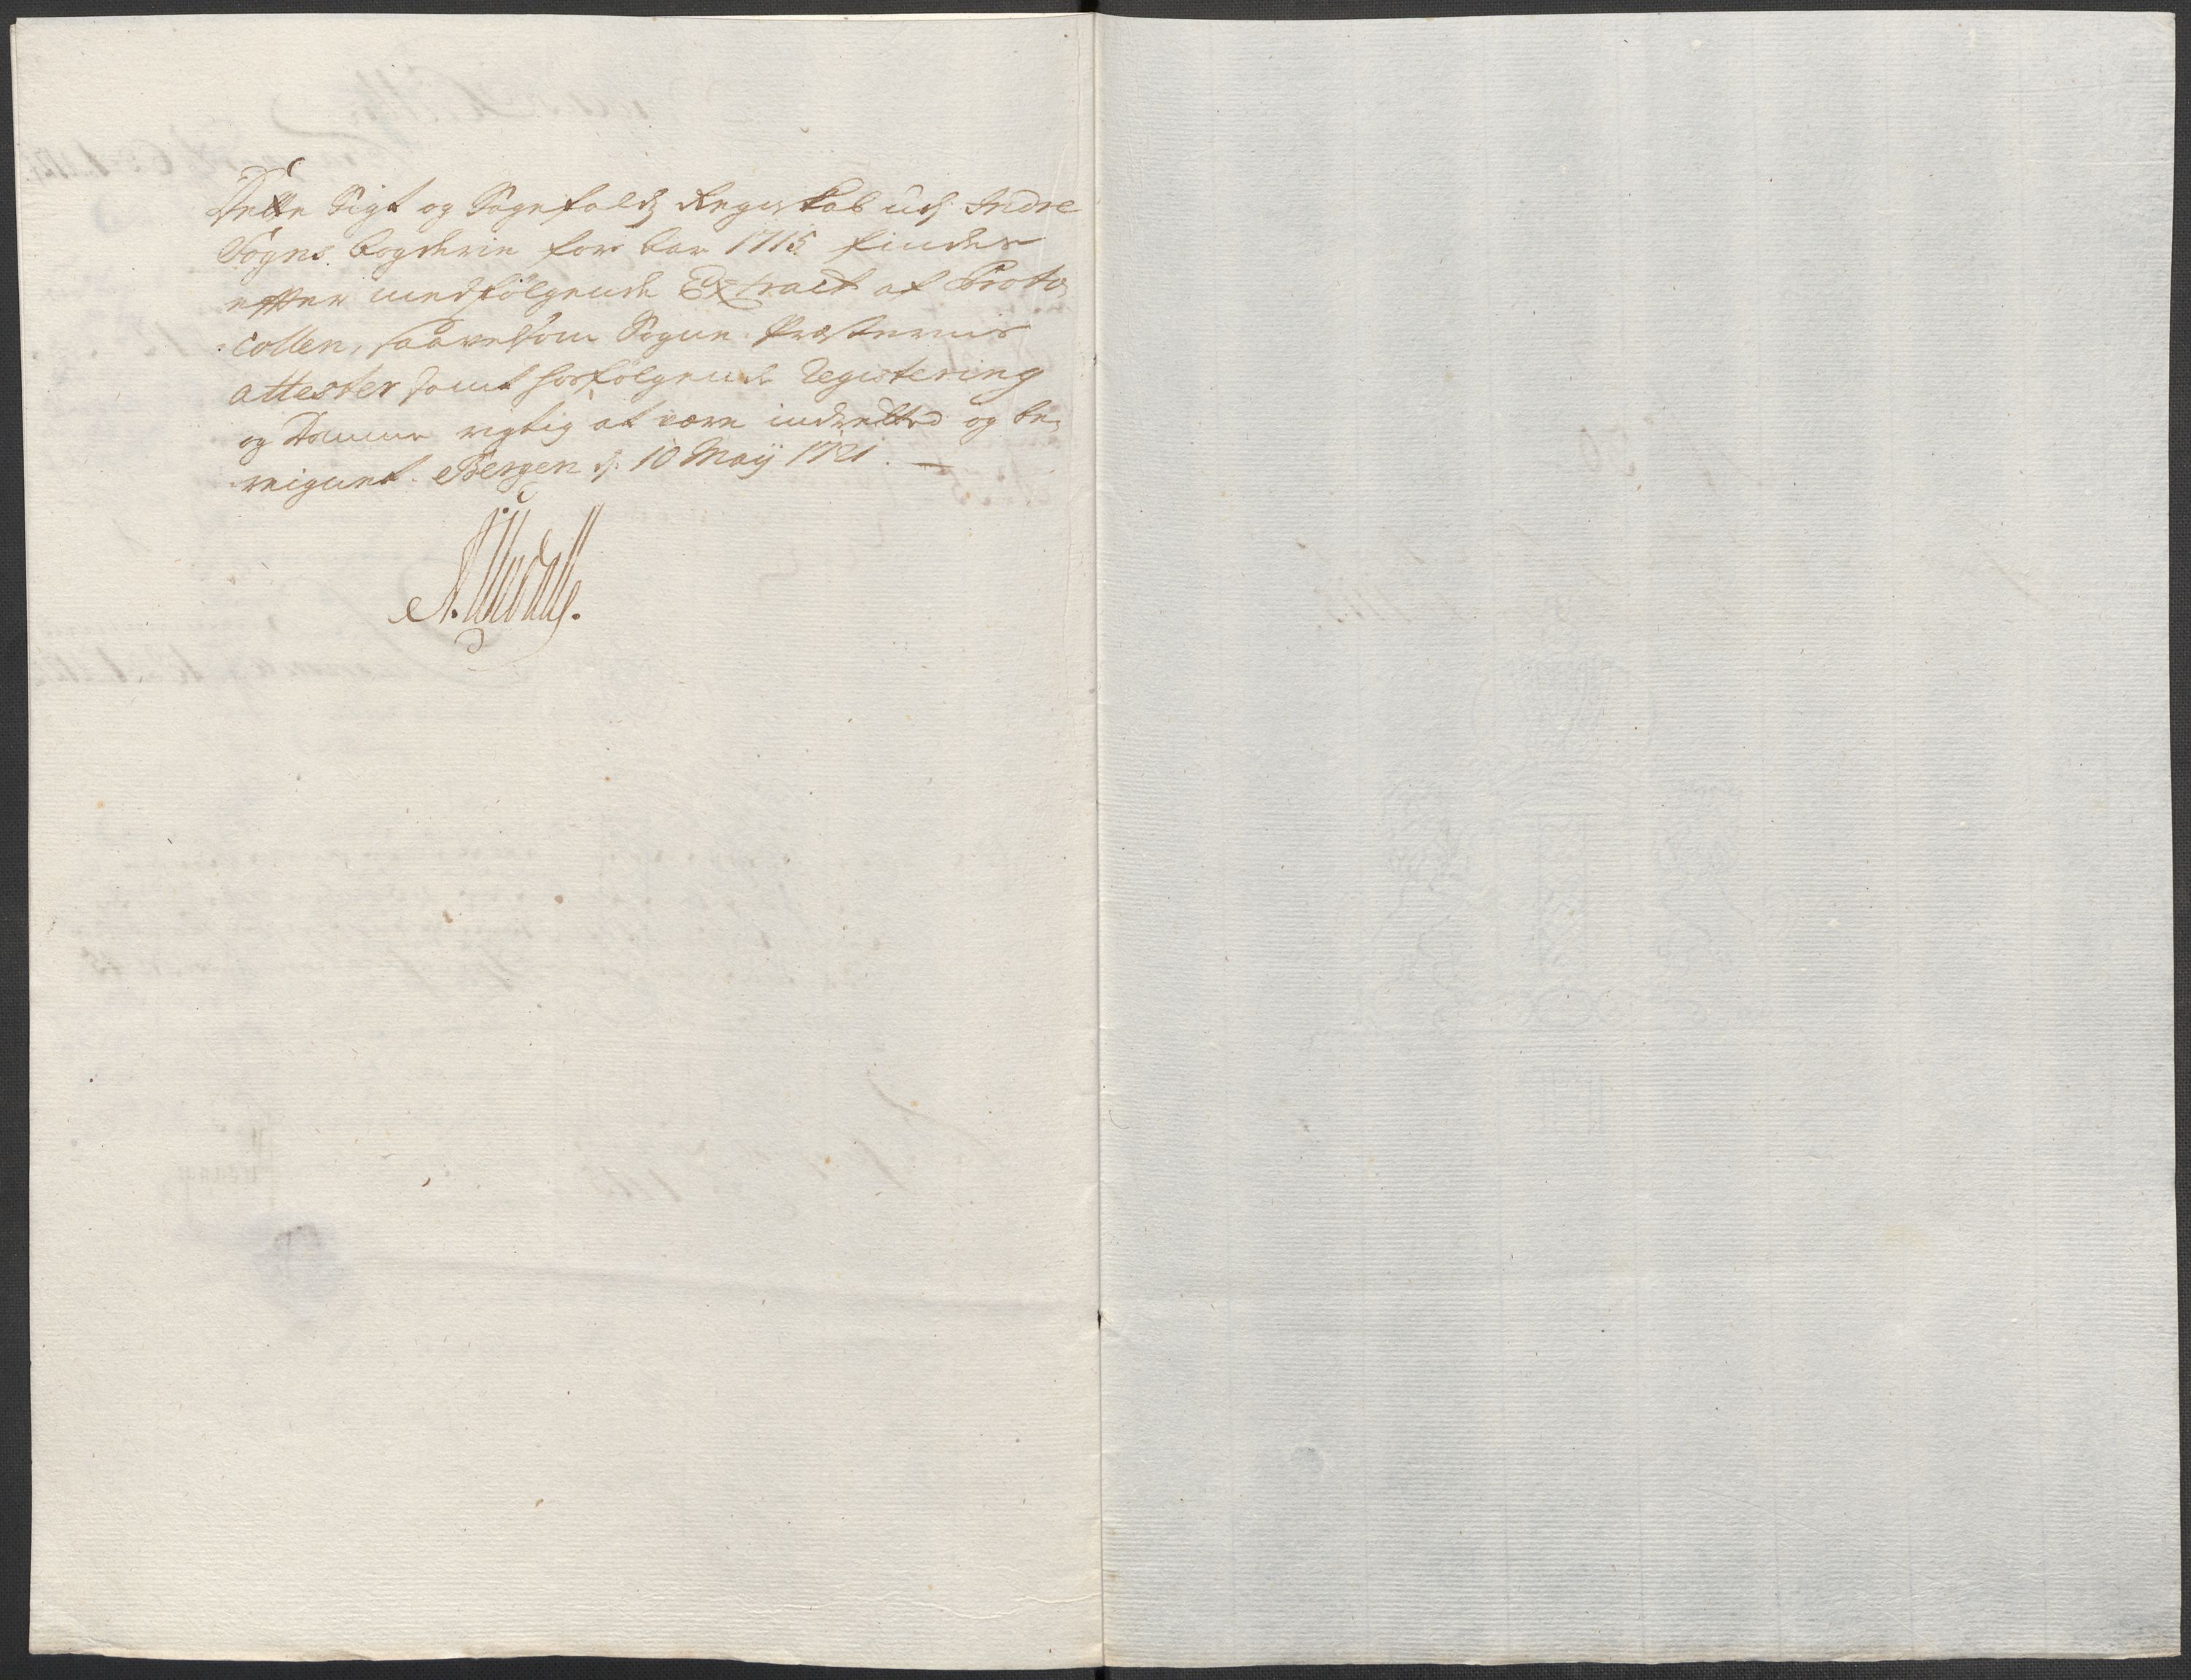 Dette Sigt og Sagefalds Regnskab udj Indre
Sogns Fogderie for aar 1715 findes
effter medfölgende Extract af Proto,
collen, saavelsom Sogne Præsternis
attester samt hosfölgende Registering
og Domme rigtig at være indretted og be,
reignet. Bergen d. 10 Maij 1721.